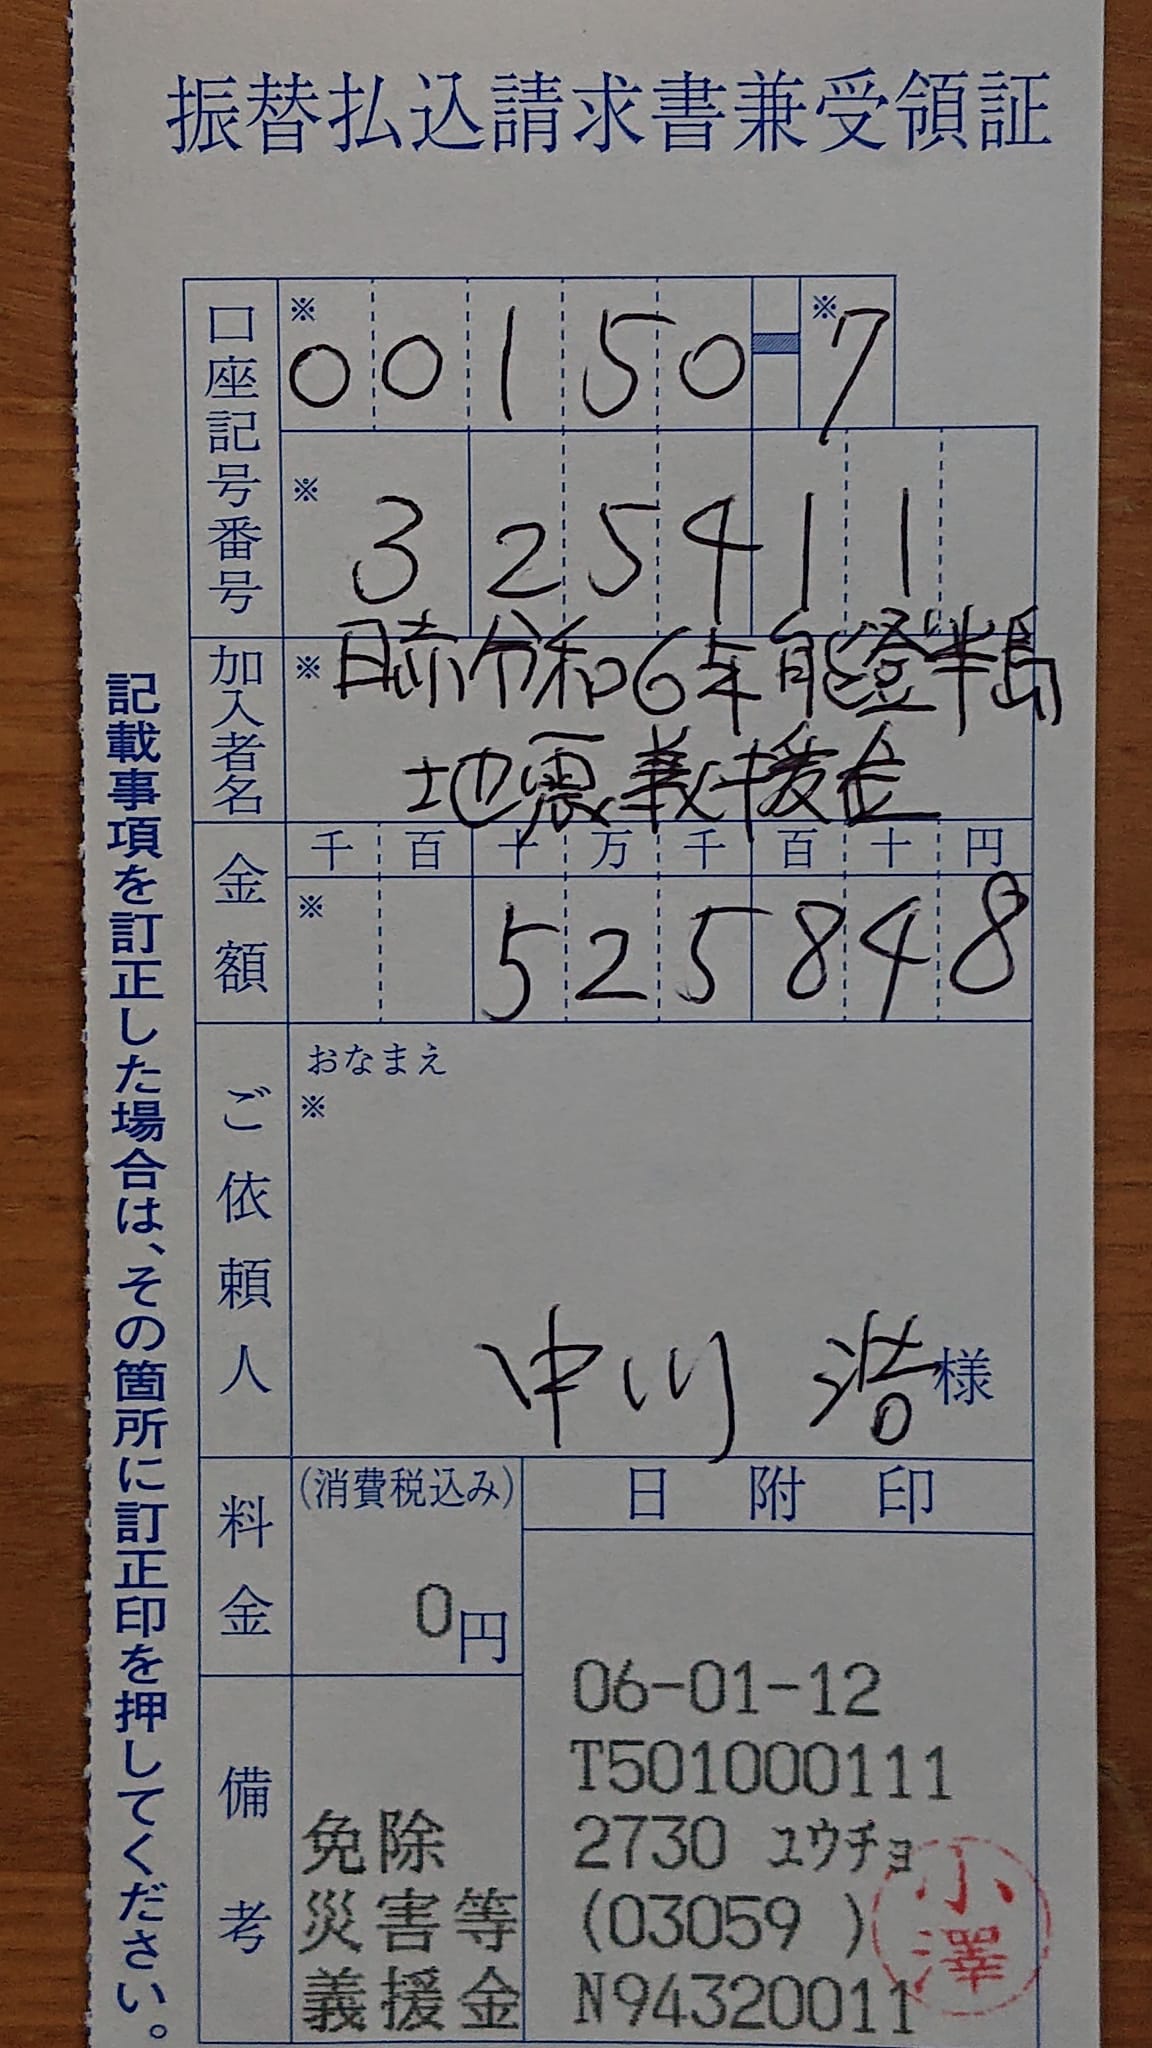 振替払込請求書兼受領証
口座記号番号
※ 00150-※7
※ 325411
加入者名
※ 日赤令和6年能登半島
地震義援金
金額
千 百 十 万 千 百 十 円
※ 525848
ご依頼人
おなまえ
※
中川 浩様
料金
(消費税込み)
0円
日附印
06-01-12
T501000111
2730 ユウチョ
(03059 )
N94320011
小澤
備考
免除
災害等
義援金
記載事項を訂正した場合は、その箇所に訂正印を押してください。